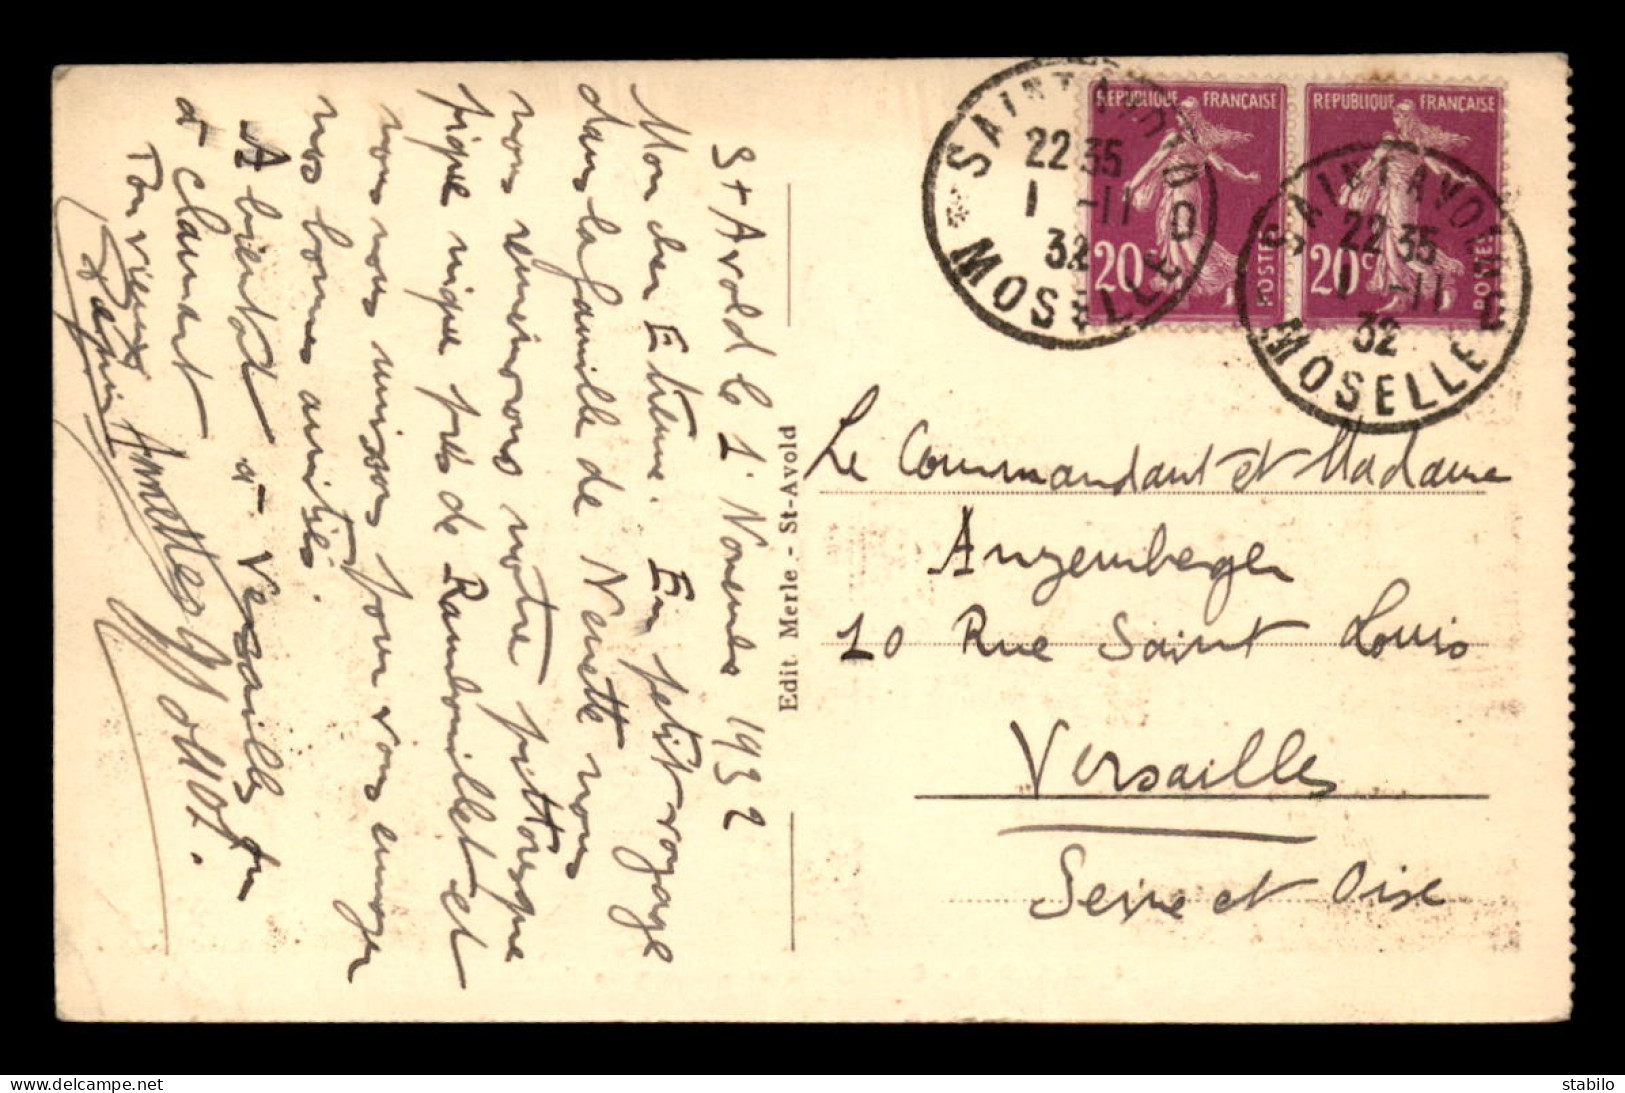 St Avold le 1' Novembre 1932
Mon cher Etienne. En petit voyage
dans la famille de Nenette nous
nous remémorons notre pittoresque
pique nique près de Rambouillet et
nous nous unissons pour vous envoyer
nos bonnes amitiés.
A bientôt à Versailles ou
à Clamart
Ton vieux
Edit. Merle - St-Avold
REPUBLIQUE FRANÇAISE
20c
POSTES
REPUBLIQUE FRANÇAISE
20c
POSTES
SAINT AVOLD
22 35
1 -11
32
MOSELLE
SAINT AVOLD
22 35
1 -11
32
MOSELLE
Le Commandant et Madame
Anzemberger
10 Rue Saint Louis
Versailles
Seine et Oise
delcampe.net
stabilo